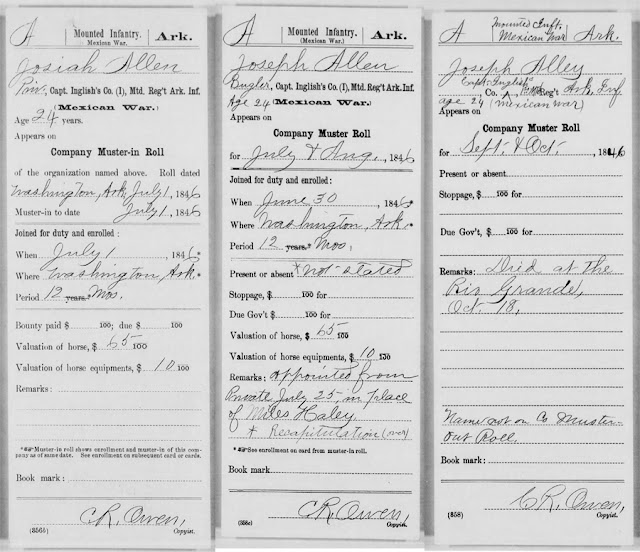 A | Mounted Infantry. (Mexican War.) | Ark.
Josiah Allen
Priv., Capt. Inglish's Co. (I), Mtd. Reg't Ark. Inf.
(Mexican War.)
Age 24 years.
Appears on
Company Muster-in Roll
of the organization named above. Roll dated
Washington, Ark, July 1, 1846
Muster-in to date July 1, 1846
Joined for duty and enrolled:
When July 1, 1846*
Where Washington, Ark.*
Period 12 years* Mos.
Bounty paid $ 100; due $ 100
Valuation of horse, $ 65 100
Valuation of horse equipments, $ 10 100
Remarks:
*Muster-in roll shows enrollment and muster-in of this com-
pany as of same date. See enrollment on subsequent card or cards.
Book mark:
C.R. Owen,
(356b) Copyist.
A | Mounted Infantry. (Mexican War.) | Ark.
Joseph Allen
Bugler, Capt. Inglish's Co. (I), Mtd. Reg't Ark. Inf.
Age 24 (Mexican War.)
Appears on
Company Muster Roll
for July & Aug, 1846
Joined for duty and enrolled:
When June 30, 1846*
Where Washington, Ark.
Period 12 years* Mos.
Present or absent * Not stated
Stoppage, $ 100 for
Due Gov't $ 100 for
Valuation of horse, $ 65 100
Valuation of horse equipments, $ 10 100
Remarks: Appointed from
Private July 25, in place
of Miles Haley
* Recapitulation (over)
*See enrollment on card from muster-in roll.
Book mark:
C.R. Owen,
(356c) Copyist.
A | Mounted Inft. Mexican War | Ark.
Joseph Alley
Capt. Inglish's
, Co. A, Reg't Ark. Inf
age 24 (Mexican War)
Appears on
Company Muster Roll
for Sept. & Oct., 1846
Present or absent:
Stoppage, $ 100 for
Due Gov't, $ 100 for
Remarks: Died at the
Rio Grande,
Oct. 18,
Name not on Co Muster-
out Roll.
Book mark:
C.R. Owen,
(358) Copyist.